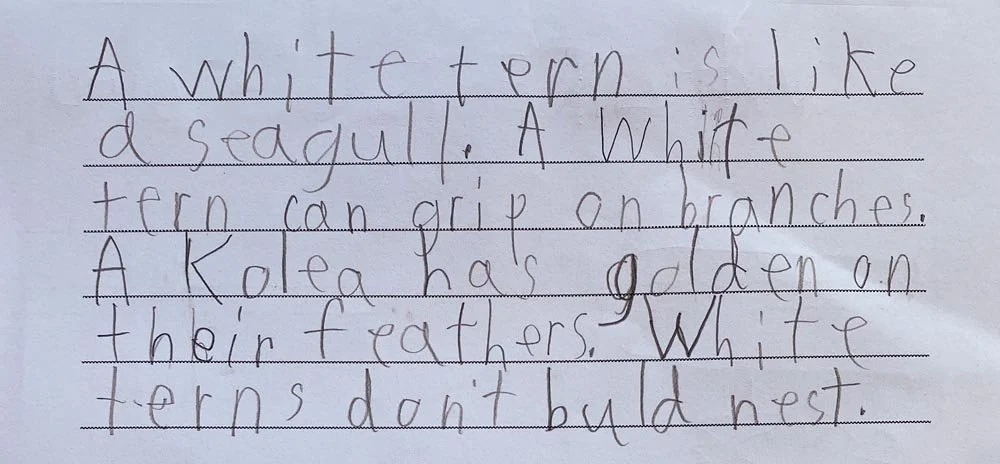 A white tern is like
a seagull. A White
tern can grip on branches.
A Kolea has golden on
their feathers. White
terns don't buld nest.